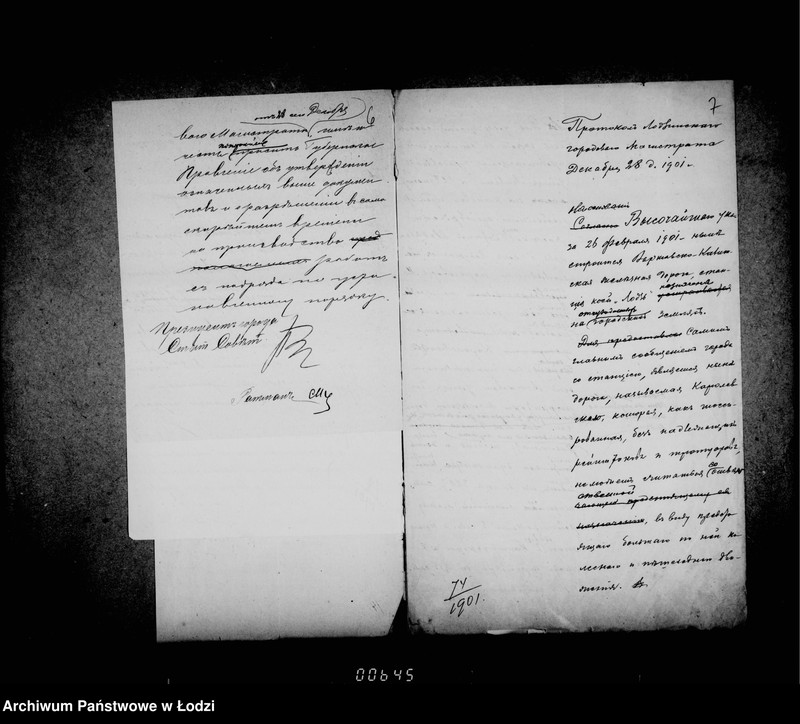 6
ваго Магистрата
честь Губернское
Правленіе объ утвержденіи
означенныхъ выше докумен
товъ и о разрѣшеніи въ само
скорѣйшемъ времени
производство
работъ
съ подряда по уста
новленному порядку.
Президентъ города
7
Протоколъ Лодзинскаго
городскаго Магистрата
Декабря 28 д. 1901.
На основаніи
Согласно Высочайшаго Ука
за 26 февраля 1901 нынѣ
строится Варшавско-Калиш
ская желѣзная дорога, стан
ція коей "Лодзь"
на городской землѣ.
Для Самымъ
главнымъ сообщеніемъ города
со станціею, является нынѣ
дорога, называемая Каролев
скою, которая, какъ шоссе
рованная, безъ надлежащихъ
и тротуаровъ,
не можетъ считаться
въ виду предсто
ящаго большаго по ней ко
леснаго и пѣшеходнаго дви
женія.
74
1901.
00645
Archiwum Państwowe w Łodzi